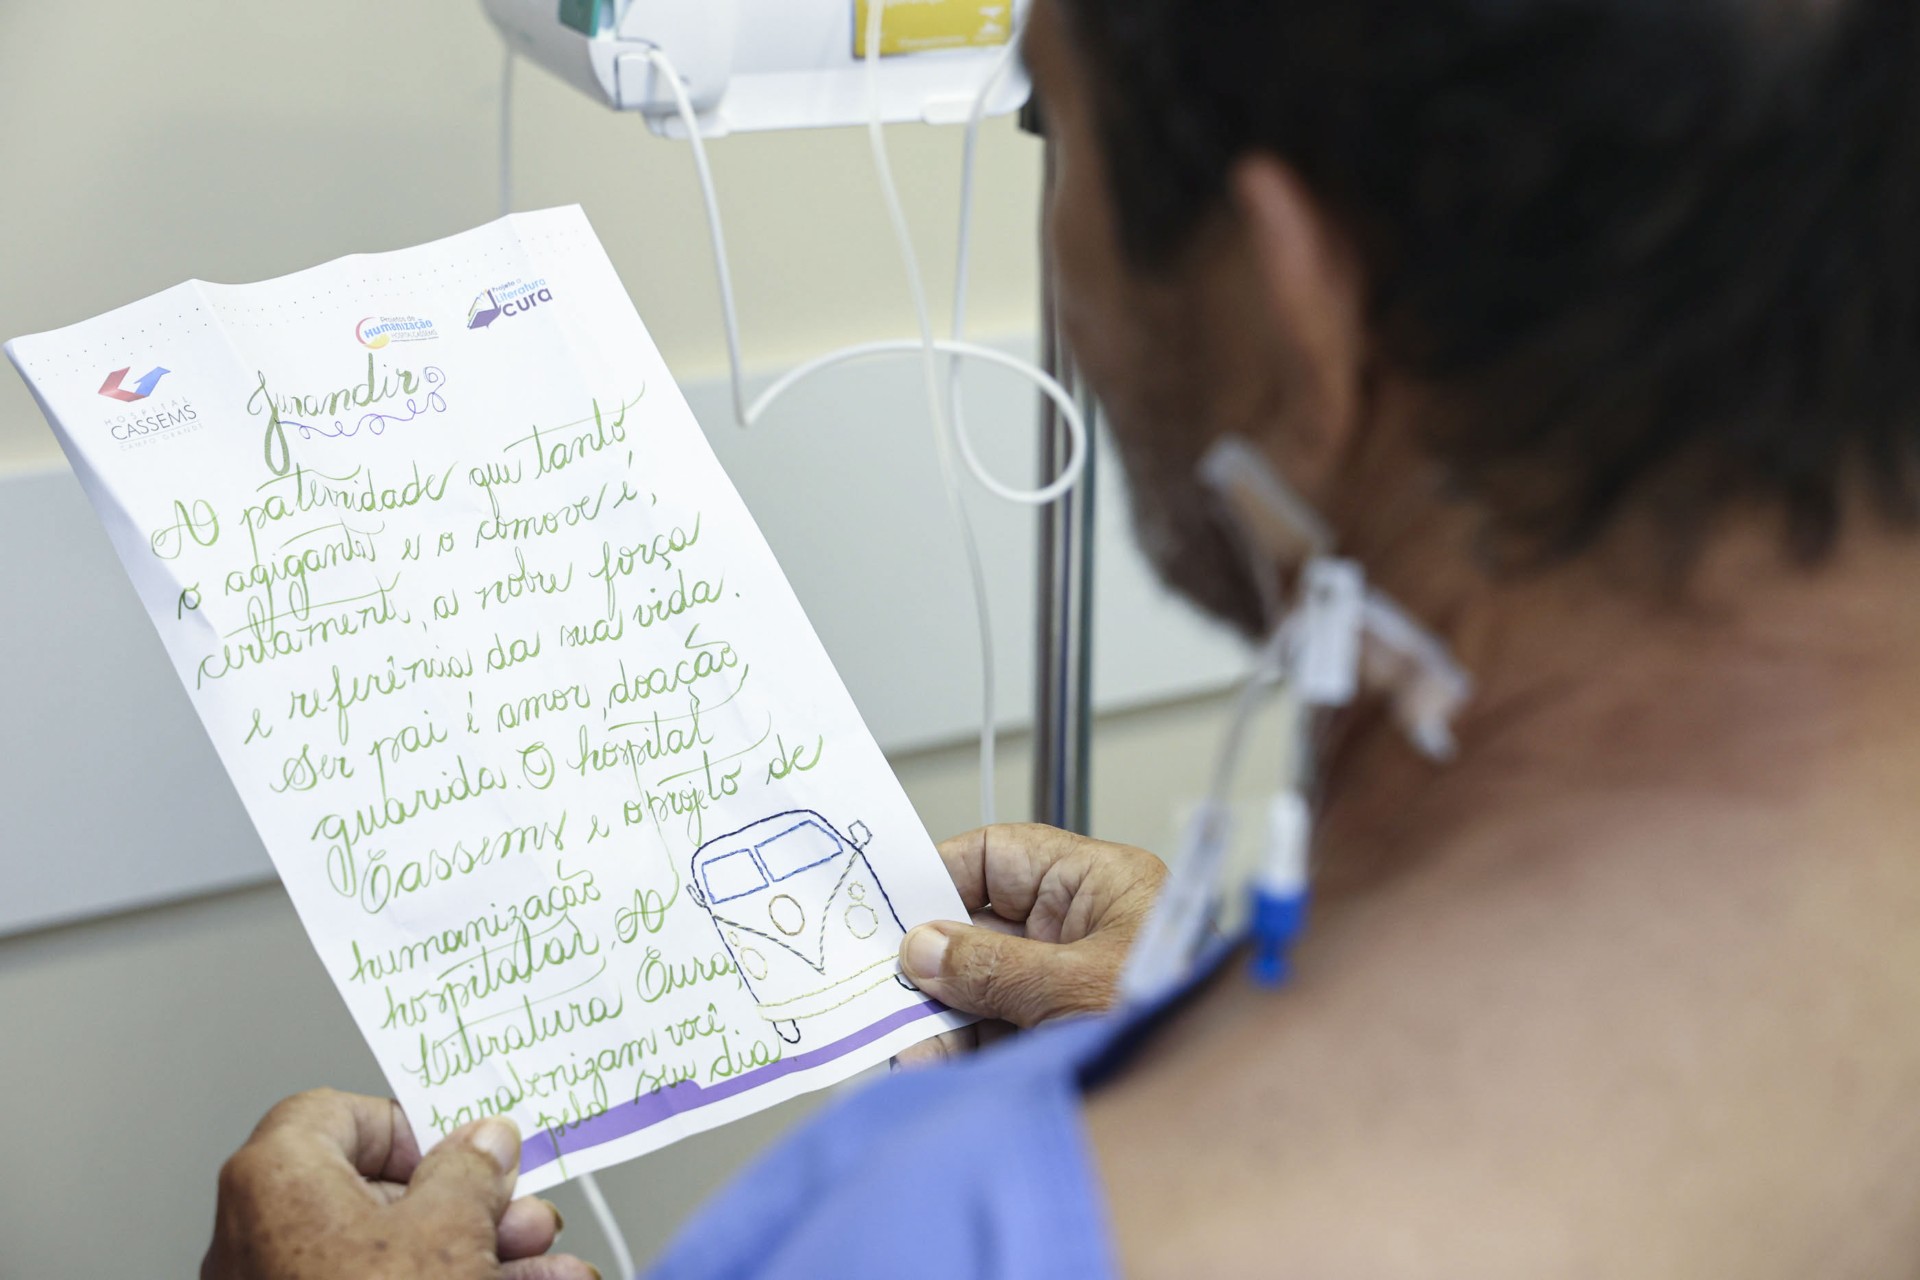 Projeto a
Literatura
cura
Projetos de
Humanização
HOSPITAL
CASSEMS
CAMPO GRANDE
Jurandir
A paternidade que tanto
o agiganta e o comove é,
certamente, a nobre força
e referência da sua vida.
Ser pai é amor, doação,
guarida. O hospital
Cassems e o projeto de
humanização
hospitalar, A
Literatura Cura,
parabenizam você
pelo seu dia